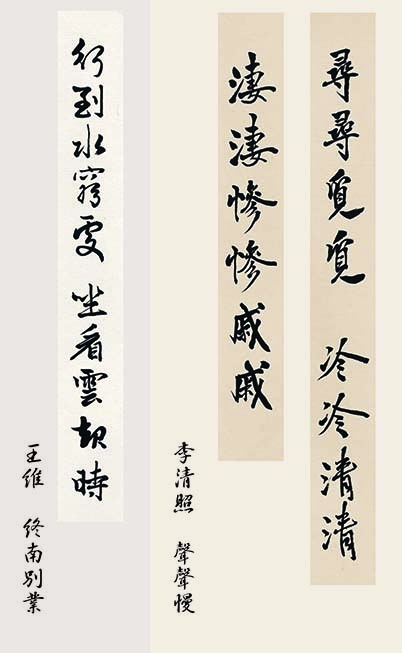 尋尋覓覓 冷冷清清
淒淒慘慘戚戚
李清照 聲聲慢
行到水窮處 坐看雲起時
王維 終南別業